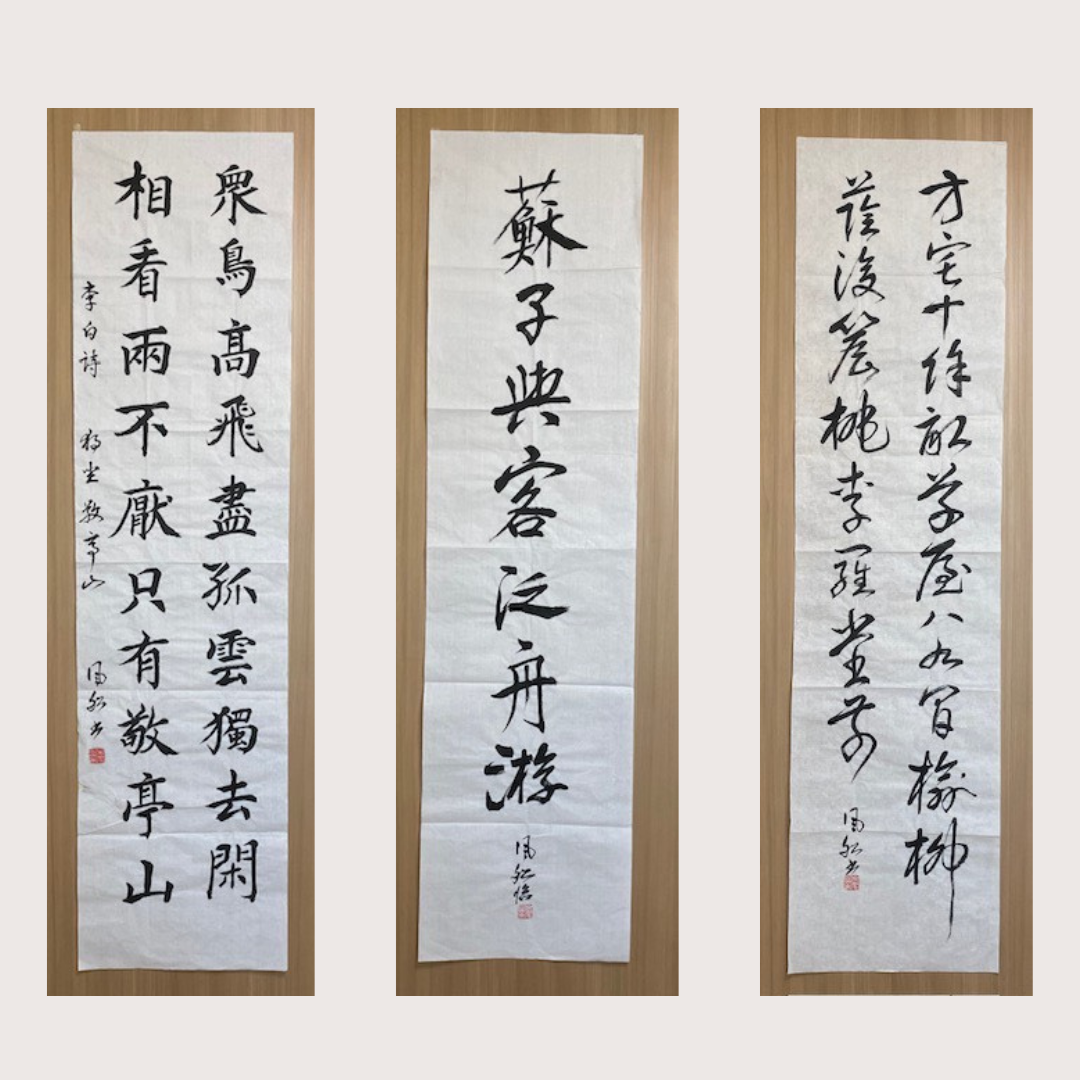 衆鳥高飛盡孤雲獨去閑
相看兩不厭只有敬亭山
李白詩 獨坐敬亭山
蘇子與客泛舟游
方宅十余畝草屋八九間榆柳
蔭後簷桃李羅堂前